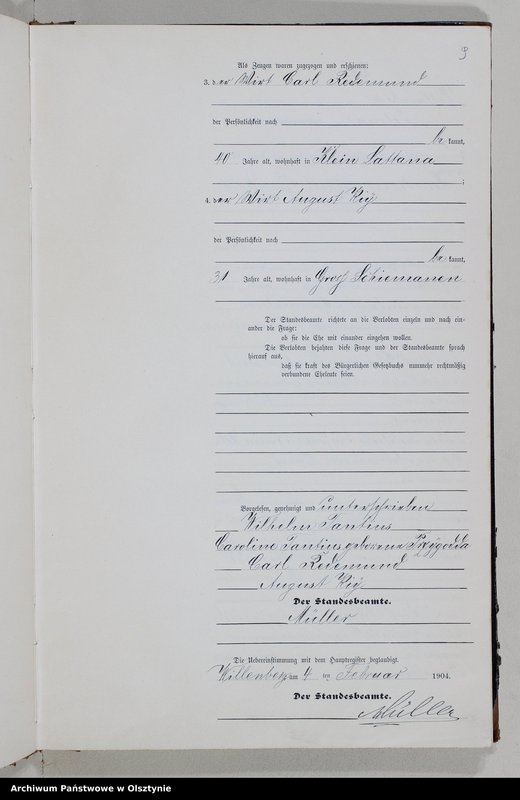 9
Als Zeugen waren zugezogen und erschienen:
3. der Wirt Carl Redemund
der Persönlichkeit nach
be kannt,
40 Jahre alt, wohnhaft in Klein Lattana
;
4. der Wirt August Kig
der Persönlichkeit nach
be kannt,
31 Jahre alt, wohnhaft in Groß Schiemanen
Der Standesbeamte richtete an die Verlobten einzeln und nach ein-
ander die Frage:
ob sie die Ehe mit einander eingehen wollen.
Die Verlobten bejahten diese Frage und der Standesbeamte sprach
hierauf aus,
daß sie kraft des Bürgerlichen Gesetzbuchs nunmehr rechtmäßig
verbundene Eheleute seien.
Vorgelesen, genehmigt und unterschrieben
Wilhelm Tantius
Caroline Tantius geborene Przygodda
Carl Redemund
August Kig
Der Standesbeamte.
Müller
Die Uebereinstimmung mit dem Hauptregister beglaubigt.
Willenberg, am 4 ten Februar 1904.
Der Standesbeamte.
Müller
Archiwum Państwowe w Olsztynie